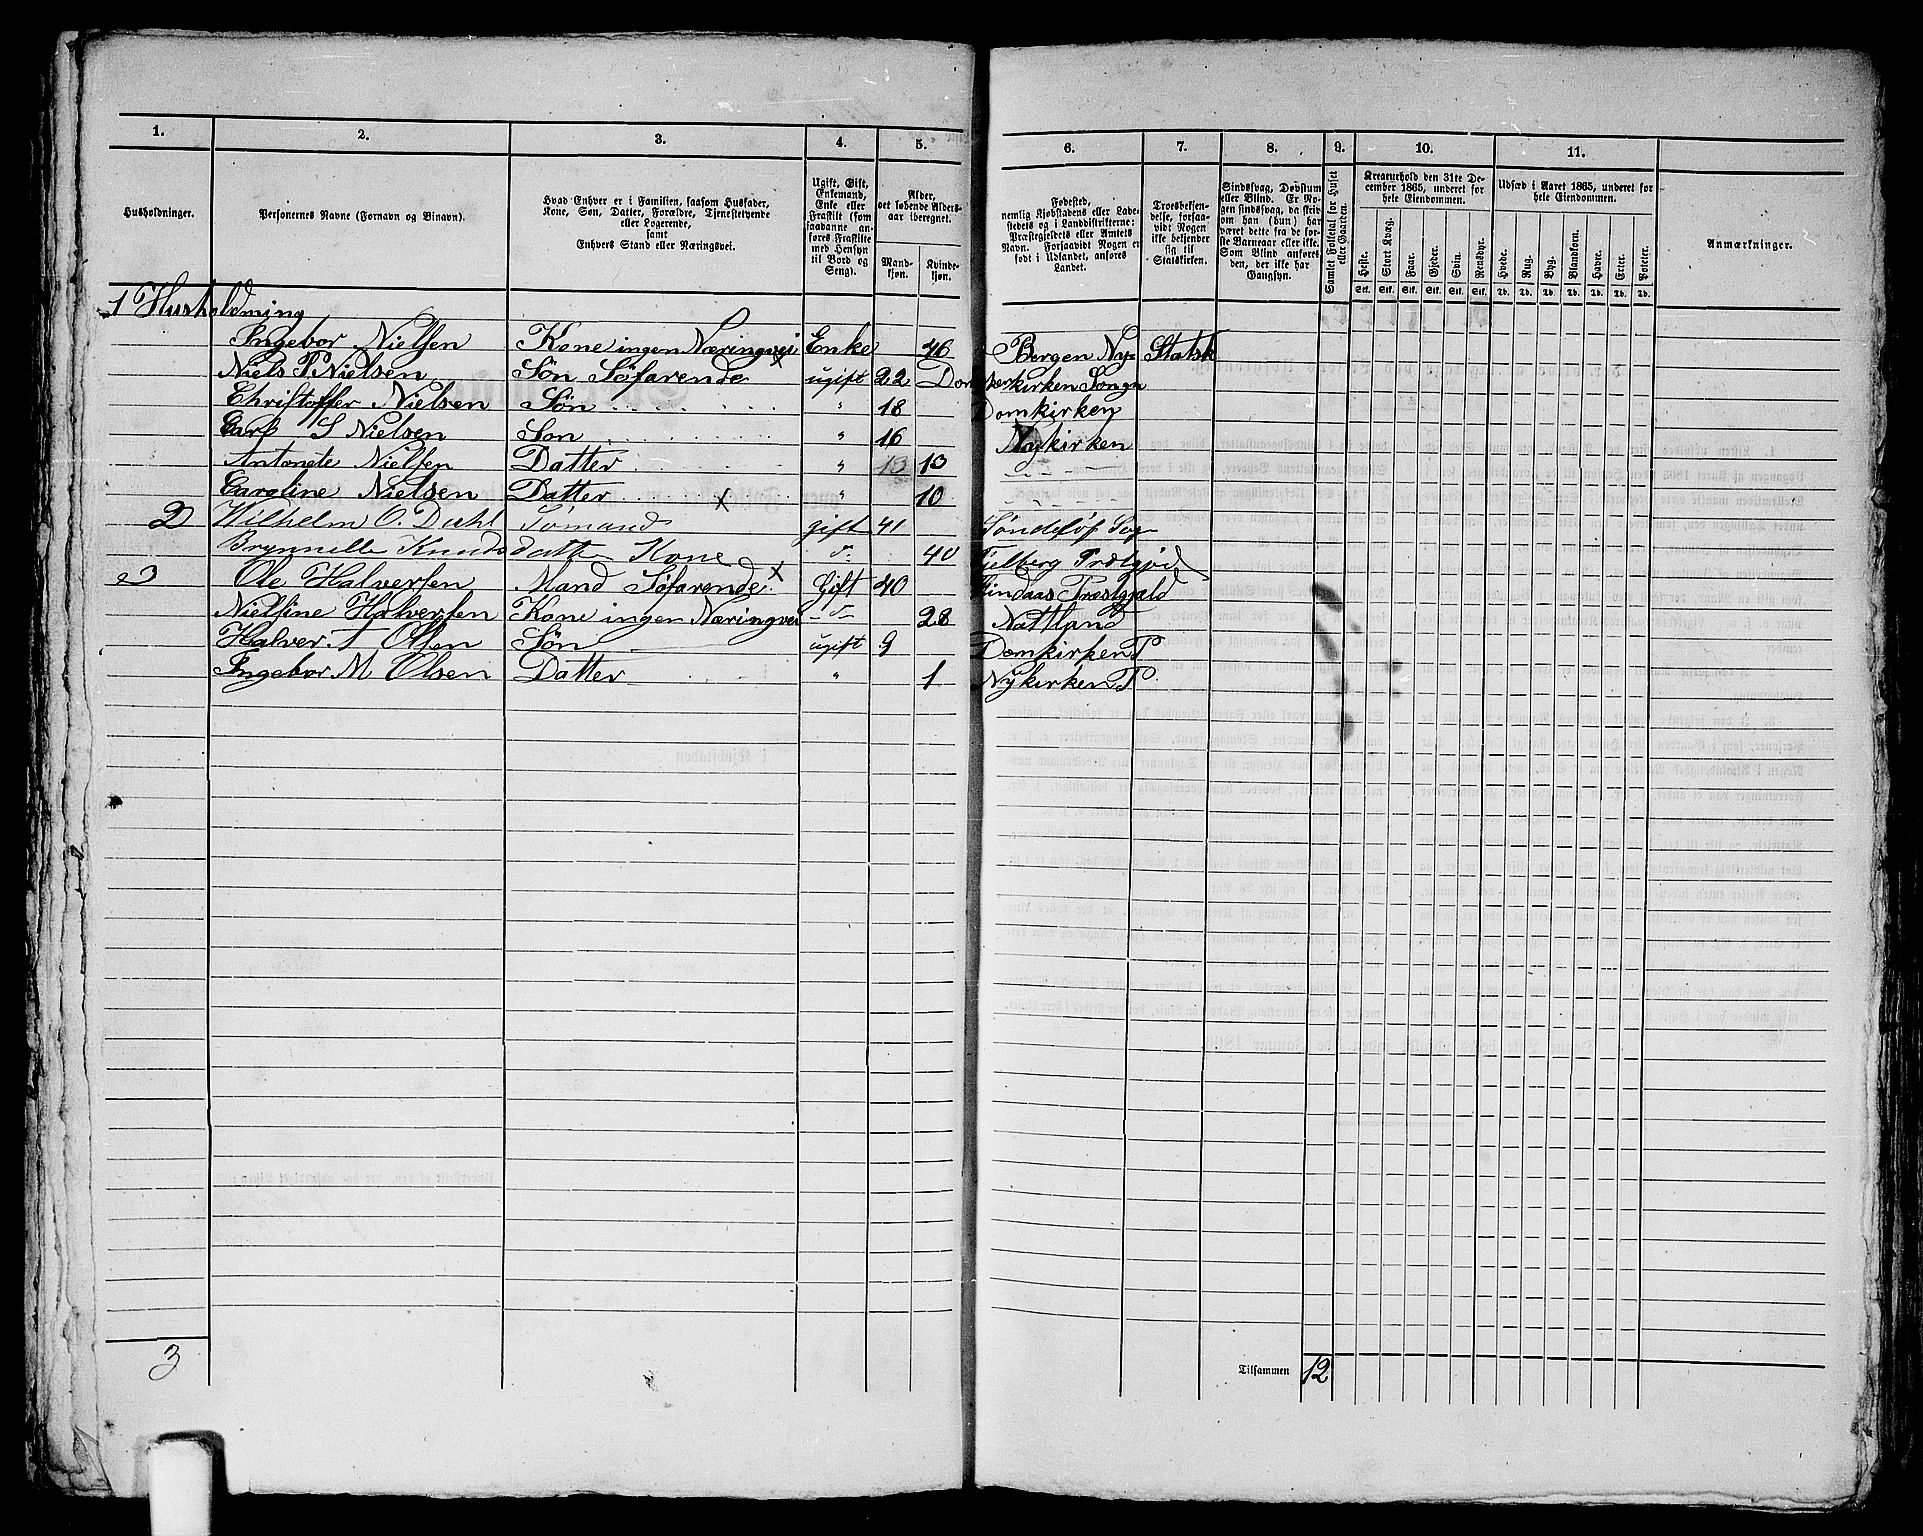 1. 2. 3. 4. 5. 6. 7. 8. 9. 10. 11.
Husholdninger.
Personernes Navne (Fornavn og Binavn).
Hvad Enhver er i Familien, saasom Husfader,
Kone, Søn, Datter, Forældre, Tjenestetyende
eller Logerende,
samt
Enhvers Stand eller Næringsvei.
Ugift, Gift,
Enkemand,
Enke eller
Fraskilt (som
saadanne an-
føres Fraskilte
med Hensyn
til Bord og
Seng).
Alder,
det løbende Alders-
aar iberegnet.
Mand-
kjøn.
Kvinde-
kjøn.
Fødested,
nemlig Kjøbstadens eller Lade-
stedets og i Landdistrikterne:
Præstegjeldets eller Amtets
Navn. Forsaavidt Nogen er
født i Udlandet, anføres
Landet.
Troesbekjen-
delse, forsaa-
vidt Nogen
ikke bekjender
sig til
Statskirken.
Sindssvag, Døvstum
eller Blind. Er No-
gen sindssvag, da skriv
om han (hun) har
været dette fra de før-
ste Barneaar eller ikke.
Som Blind anføres
den, der ikke har
Gangsyn.
Samlet Folketal for Huset
eller Gaarden.
Kreaturhold den 31te De-
cember 1865, underet for
hele Eiendommen.
Heste. Stort Kvæg. Faar. Gjeder. Svin. Rensdyr.
Stk. Stk. Stk. Stk. Stk. Stk.
Udsæd i Aaret 1865, underet for
hele Eiendommen.
Hvede. Rug. Byg. Blandkorn. Havre. Erter. Poteter.
Td. Td. Td. Td. Td. Td. Td.
Anmærkninger.
1 Husholdning
Ingebor Nielsen Kone ingen Næringvei Enke 46 Bergen Ny= Statsk
Niels P Nielsen Søn Søfarende x ugift 22 Domkirken Songn
Christoffer Nielsen Søn " 18 Domkirken
Carl S Nielsen Søn " 16 Nykirken
Antonete Nielsen Datter " 13 13 — " —
Caroline Nielsen Datter " 10 — " —
2 Wilhelm O. Dahl Sømand x gift 41
Brynnille Knudsdatter Kone " 40 Fjelberg
3 Ole Halversen Mand Søfarende x Gift 40 Lindaas Præstgjald
Nielline Halversen Kone ingen Næringvei " 28 Nattland
Halver A Olsen Søn ugift 9 Domkirken P
Ingebor M Olsen Datter " 1 Nykirken P
3
Tilsammen 12